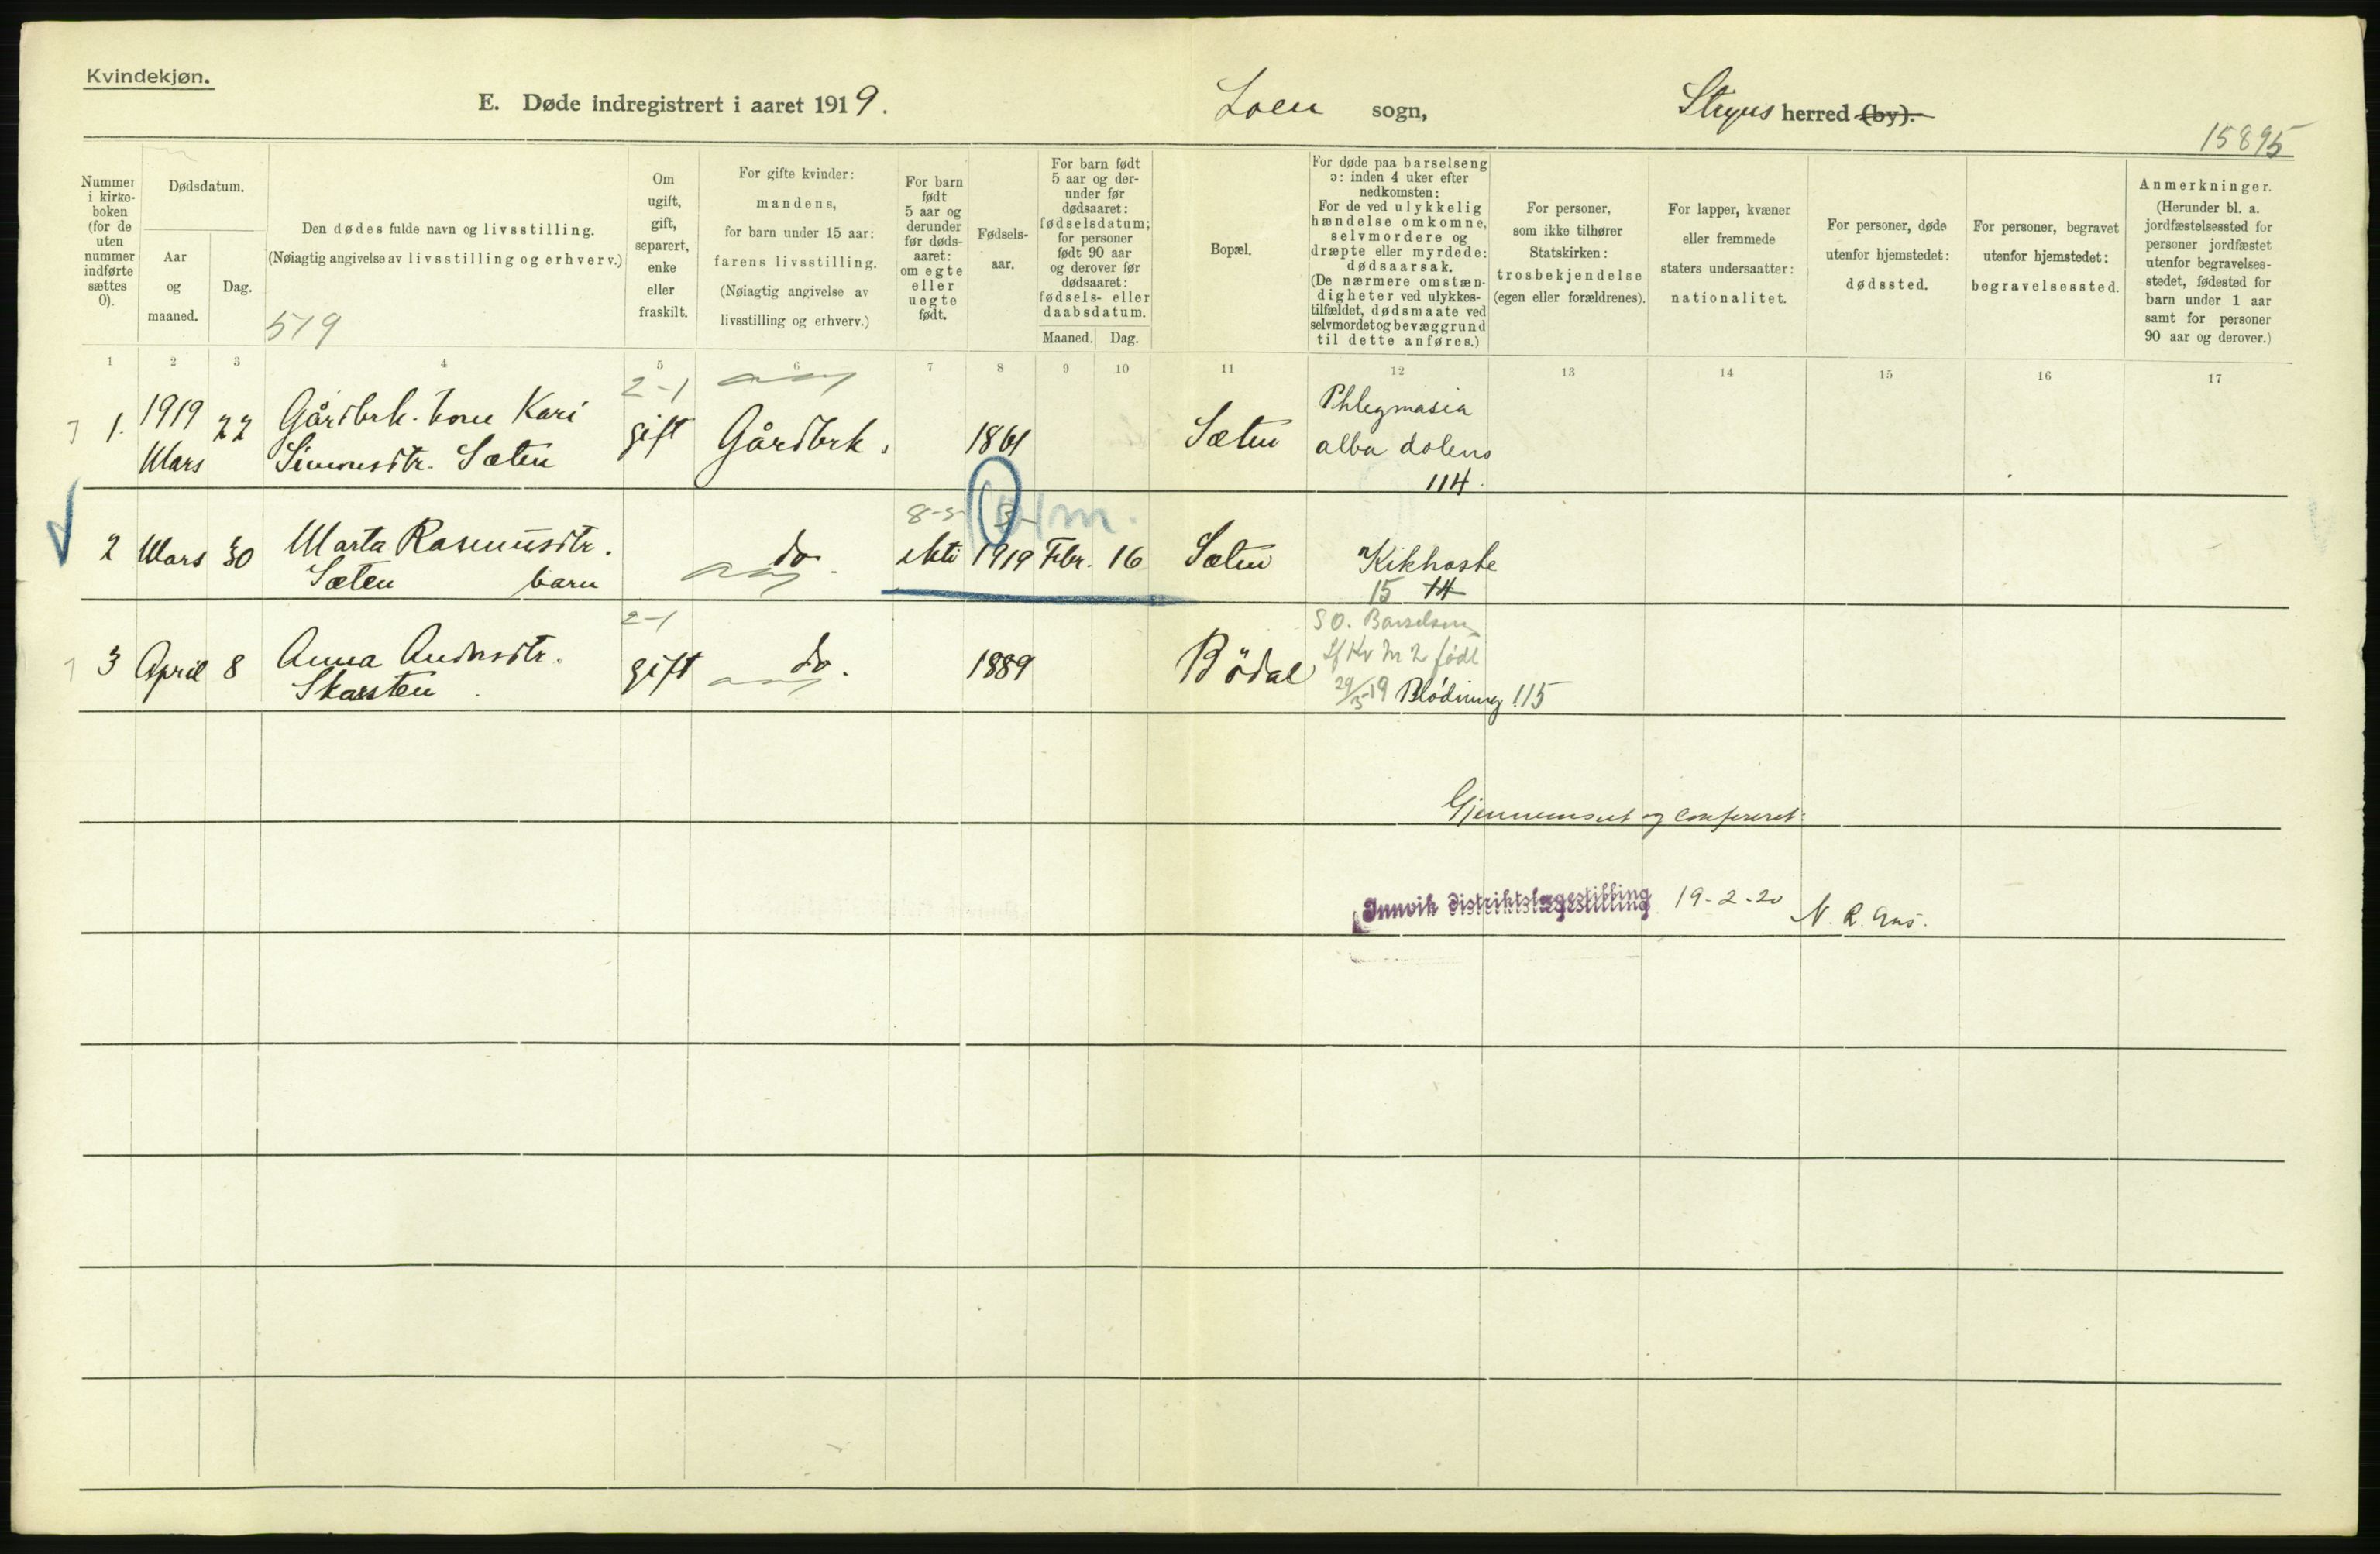 Kvindekjøn.
E. Døde indregistrert i aaret 1919.
Loen sogn,
Stryns herred (by).
15895
Nummer i kirke-boken (for de uten nummer indførte sættes 0).
Dødsdatum.
Aar og maaned.
Dag.
Den dødes fulde navn og livsstilling.
(Nøiagtig angivelse av livsstilling og erhverv.)
519
Om ugift, gift, separert, enke eller fraskilt.
For gifte kvinder: mandens, for barn under 15 aar: farens livsstilling.
(Nøiagtig angivelse av livsstilling og erhverv.)
For barn født 5 aar og derunder før døds-aaret: om egte eller uegte født.
Fødsels-aar.
For barn født 5 aar og der-under før dødsaaret: fødselsdatum; for personer født 90 aar og derover før dødsaaret: fødsels- eller daabsdatum.
Maaned. Dag.
Bopæl.
For døde paa barselseng ɔ: inden 4 uker efter nedkomsten:
For de ved ulykkelig hændelse omkomne, selvmordere og dræpte eller myrdede: dødsaarsak.
(De nærmere omstæn-digheter ved ulykkes-tilfældet, dødsmaate ved selvmordet og bevæggrund til dette anføres.)
For personer, som ikke tilhører Statskirken: trosbekjendelse (egen eller forældrenes).
For lapper, kvæner eller fremmede staters undersaatter: nationalitet.
For personer, døde utenfor hjemstedet: dødssted.
For personer, begravet utenfor hjemstedet: begravelsessted.
Anmerkninger.
(Herunder bl. a. jordfæstelsessted for personer jordfæstet utenfor begravelses-stedet, fødested for barn under 1 aar samt for personer 90 aar og derover.)
1 2 3 4 5 6 7 8 9 10 11 12 13 14 15 16 17
2-1
1. 1919 Mars 22 Gårdbrk. kone Kari Simonsdtr. Sæten gift Gårdbrk. 1861 Sæten Phlegmasia alba dolens
114.
8-5 1m.
2 Mars 30 Marta Rasmusdtr. Sæten barn do. ekte 1919 Febr. 16 Sæten Kikhoste
15 14
2-1
3 April 8 Anna Andersdtr. Skarsten gift do. 1889 Bödal S O. Barselseng
Lf Kv Nr 2 født
29/3-19 Blödning 115
Gjennemset og confereret:
Innvik distriktslægestilling 19-2-20 N. R.